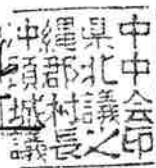 沖縄県中
頭郡北中
城村議会
議長之印